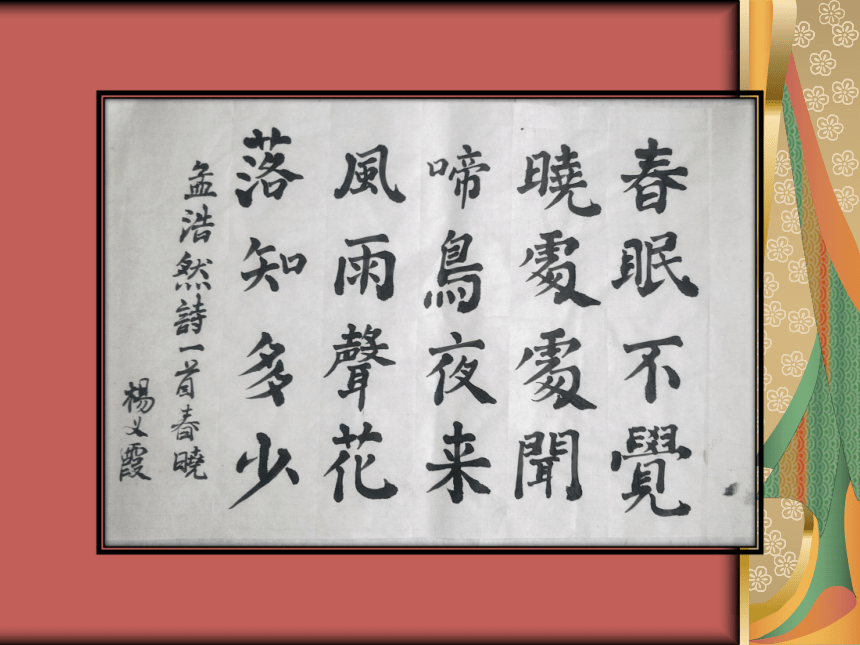 春眠不覺
曉處處聞
啼鳥夜来
風雨聲花
落知多少
孟浩然詩一首春曉
楊义霞